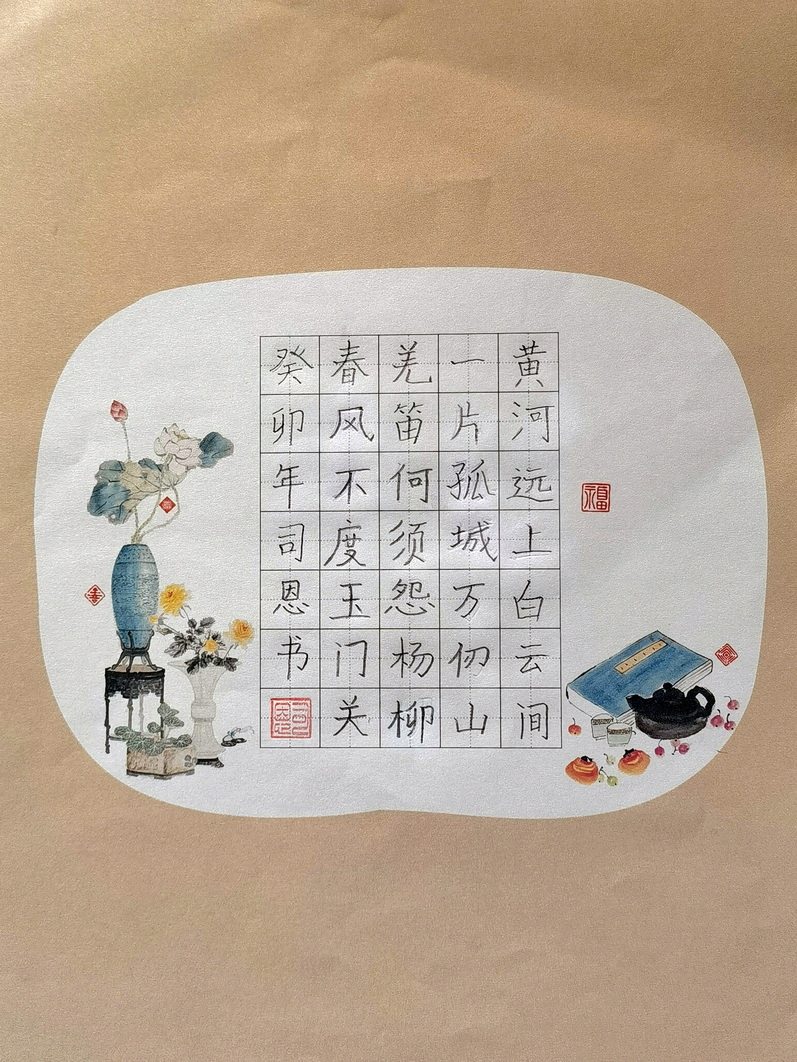 黄河远上白云间
一片孤城万仞山
羌笛何须怨杨柳
春风不度玉门关
癸卯年司恩书
福